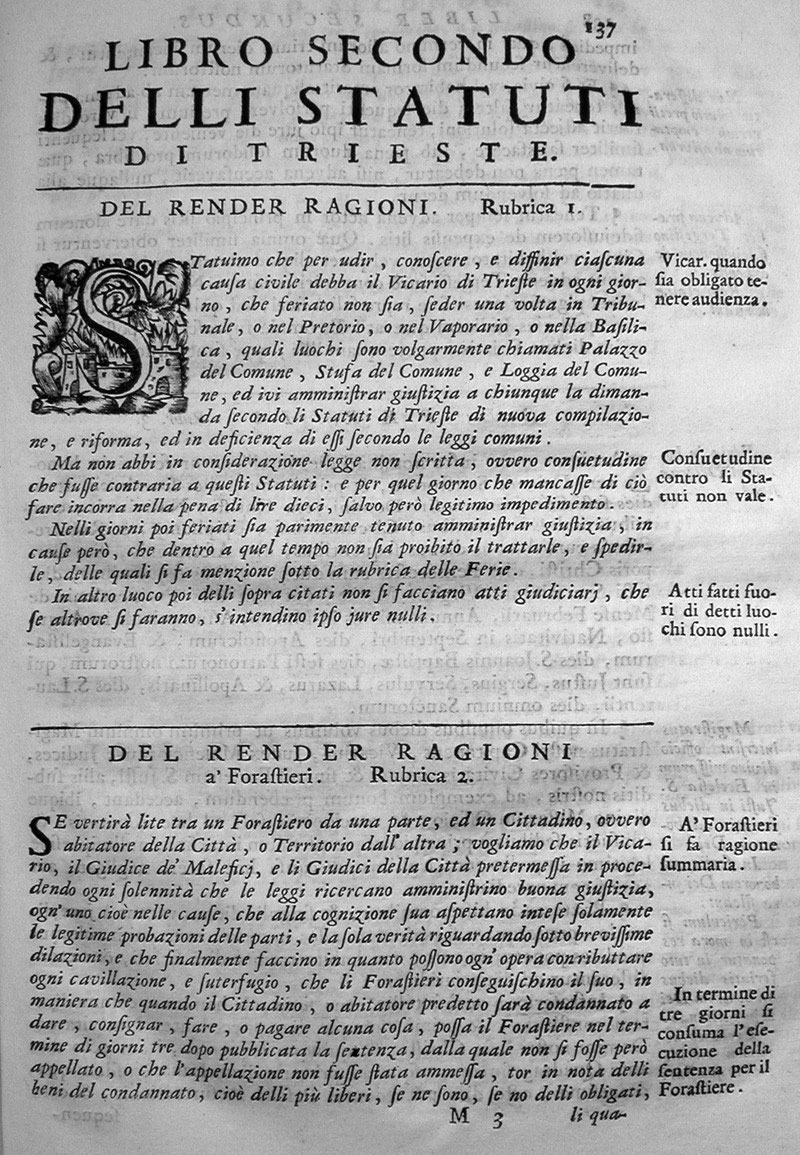 137
LIBRO SECONDO
DELLI STATUTI
DI TRIESTE.
DEL RENDER RAGIONI. Rubrica 1.
STatuimo che per udir, conoſcere, e diffinir ciaſcuna
cauſa civile debba il Vicario di Trieſte in ogni gior-
no, che feriato non ſia, ſeder una volta in Tribu-
nale, o nel Pretorio, o nel Vaporario, o nella Baſili-
ca, quali luochi ſono volgarmente chiamati Palazzo
del Comune, Stufa del Comune, e Loggia del Comu-
ne, ed ivi amminiſtrar giuſtizia a chiunque la diman-
da ſecondo li Statuti di Trieſte di nuova compilazio-
ne, e riforma, ed in deficienza di eſſi ſecondo le leggi comuni.
Vicar. quando
ſia obligato te-
nere audienza.
Ma non abbi in conſiderazione legge non ſcritta, ovvero conſuetudine
che fuſſe contraria a queſti Statuti: e per quel giorno che mancaſſe di ciò
fare incorra nella pena di lire dieci, ſalvo però legitimo impedimento.
Conſuetudine
contro li Sta-
tuti non vale.
Nelli giorni poi feriati ſia parimente tenuto amminiſtrar giuſtizia, in
cauſe però, che dentro a quel tempo non ſia proibito il trattarle, e ſpedir-
le, delle quali ſi fa menzione ſotto la rubrica delle Ferie.
In altro luoco poi delli ſopra citati non ſi facciano atti giudiciarj, che
ſe altrove ſi faranno, s'intendino ipſo jure nulli.
Atti fatti fuo-
ri di detti luo-
chi ſono nulli.
DEL RENDER RAGIONI
a' Foraſtieri. Rubrica 2.
SE vertirà lite tra un Foraſtiero da una parte, ed un Cittadino, ovvero
abitatore della Città, o Territorio dall' altra; vogliamo che il Vica-
rio, il Giudice de' Maleficj, e li Giudici della Città pretermeſſa in proce-
dendo ogni ſolennità che le leggi ricercano amminiſtrino buona giuſtizia,
ogn' uno cioè nelle cauſe, che alla cognizione ſua aſpettano inteſe ſolamente
le legitime probazioni delle parti, e la ſola verità riguardando ſotto breviſſime
dilazioni, e che finalmente faccino in quanto poſſono ogn' opera con ributtare
ogni cavillazione, e ſuterfugio, che li Foraſtieri conſeguiſchino il ſuo, in
maniera che quando il Cittadino, o abitatore predetto ſarà condannato a
dare, conſignar, fare, o pagare alcuna coſa, poſſa il Foraſtiere nel ter-
mine di giorni tre dopo pubblicata la ſentenza, dalla quale non ſi foſſe però
appellato, o che l'appellazione non fuſſe ſtata ammeſſa, tor in nota delli
beni del condannato, cioè delli più liberi, ſe ne ſono, ſe no delli obligati,
A' Foraſtieri
ſi fa ragione
ſummaria.
In termine di
tre giorni ſi
conſuma l'eſe-
cuzione della
ſentenza per il
Foraſtiere.
M 3 li qua-